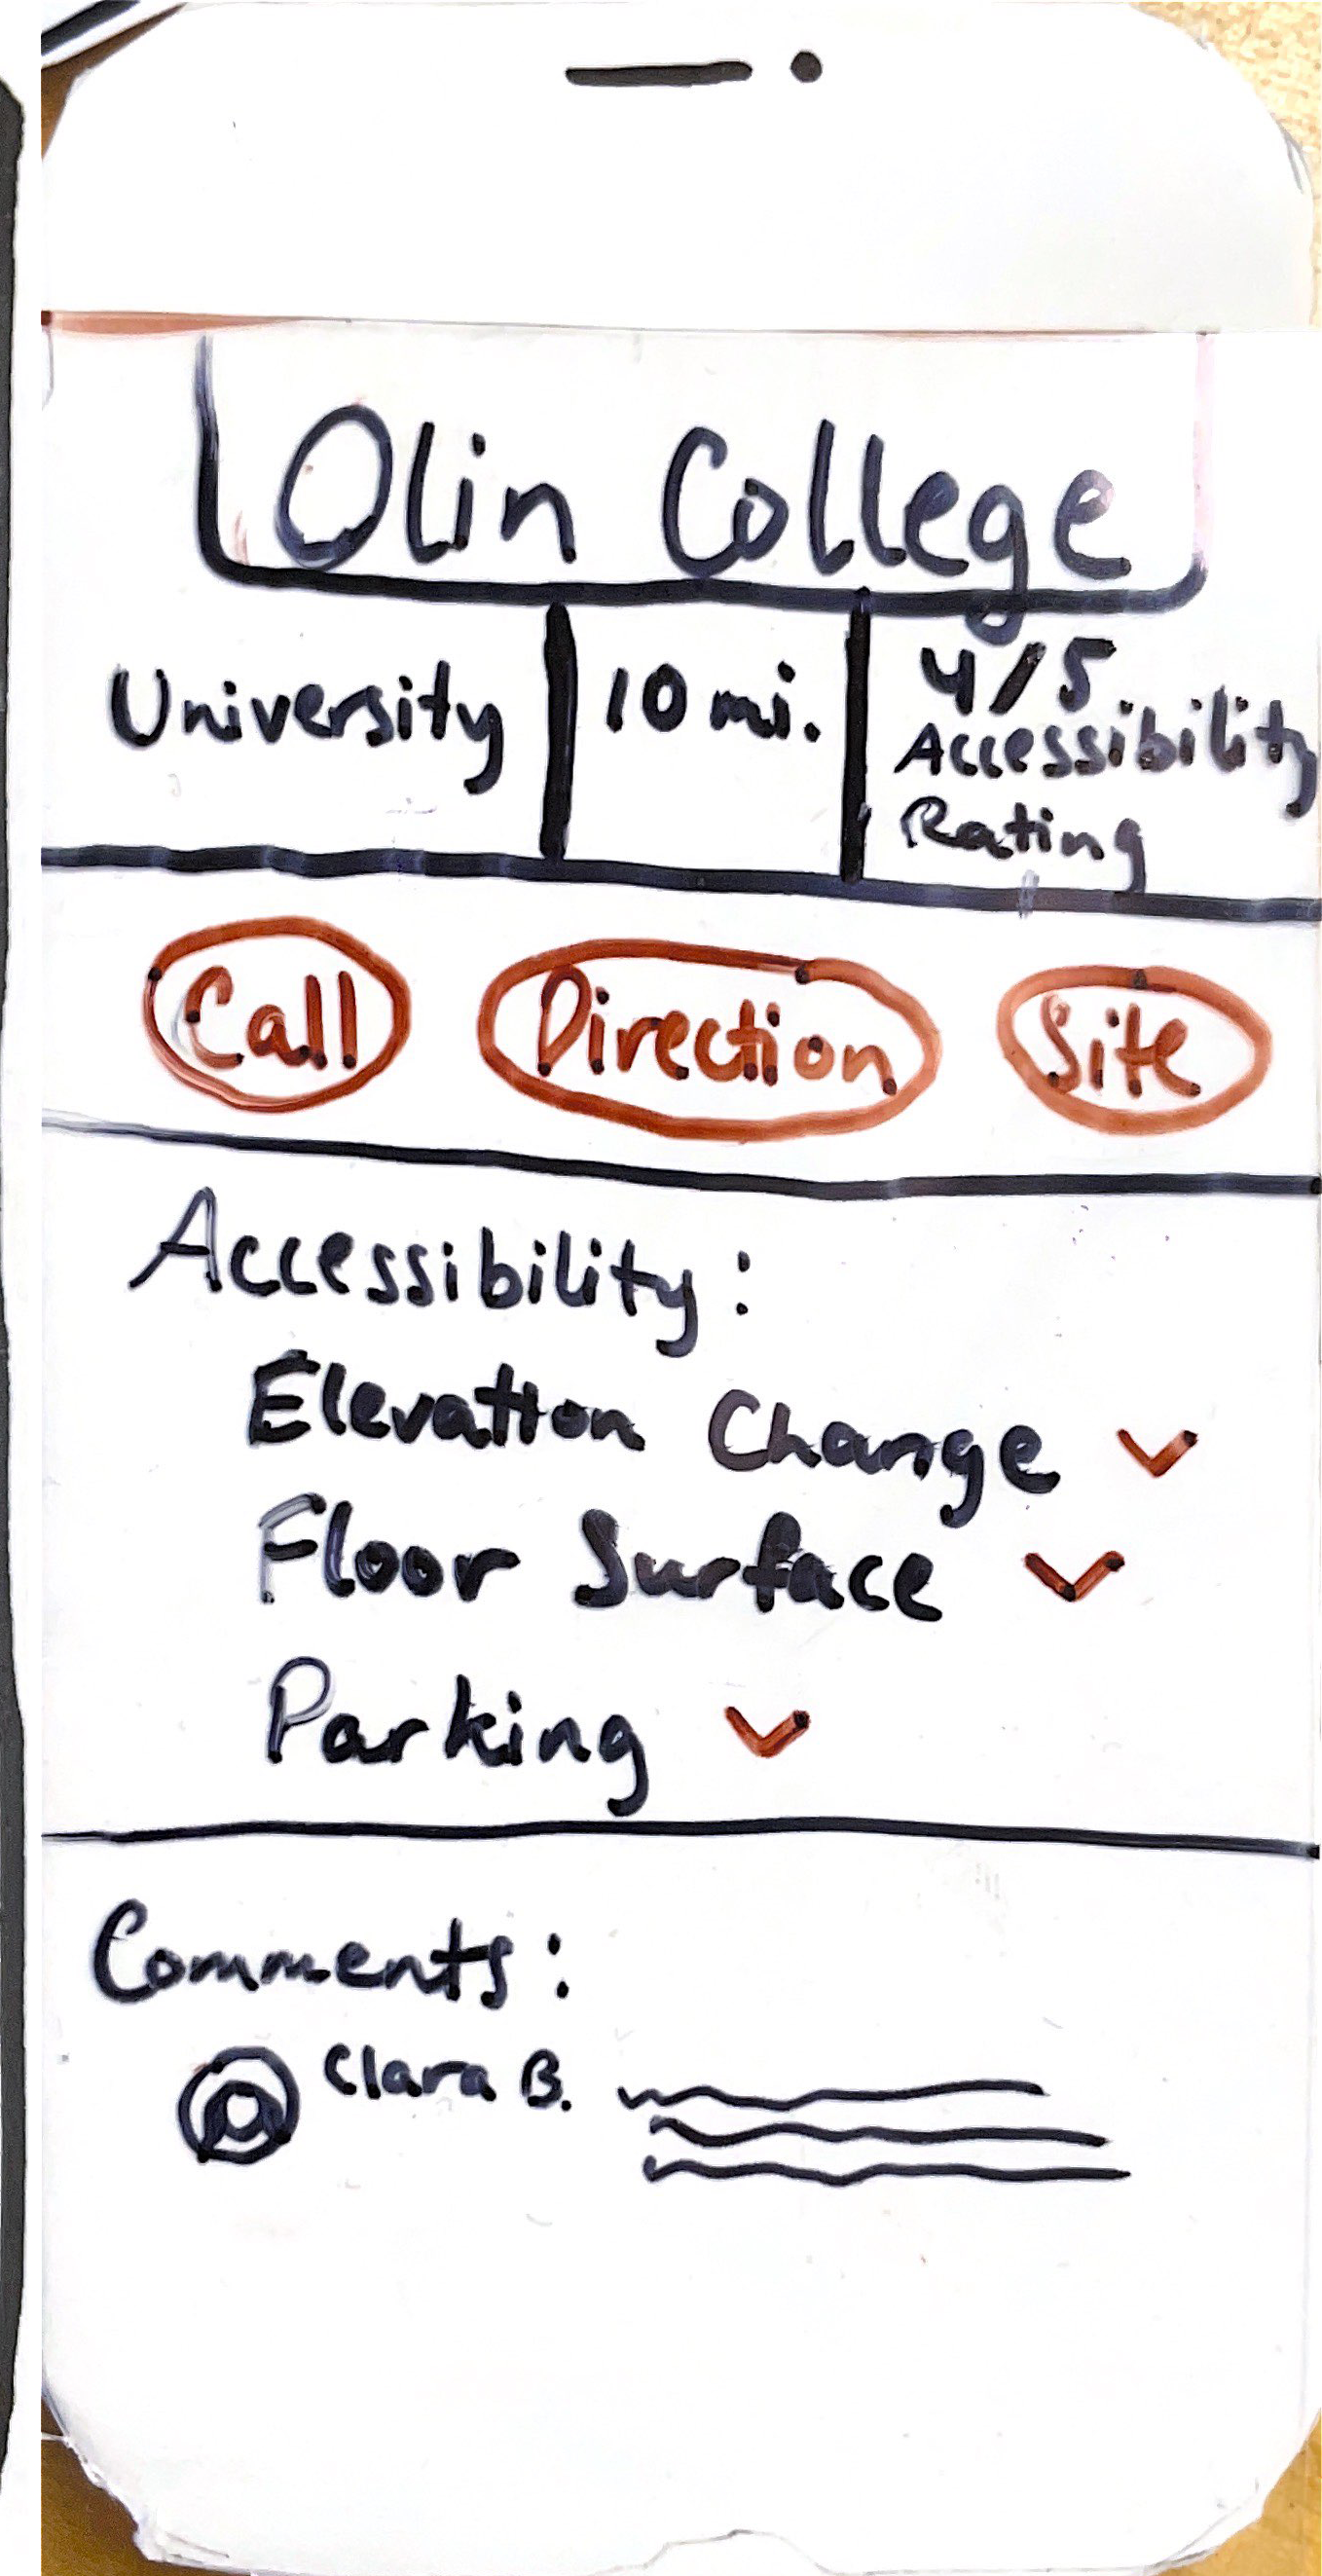 Olin College
University
10 mi.
4/5
Accessibility
Rating
Call
Direction
Site
Accessibility:
Elevation Change
Floor Surface
Parking
Comments:
Clara B.